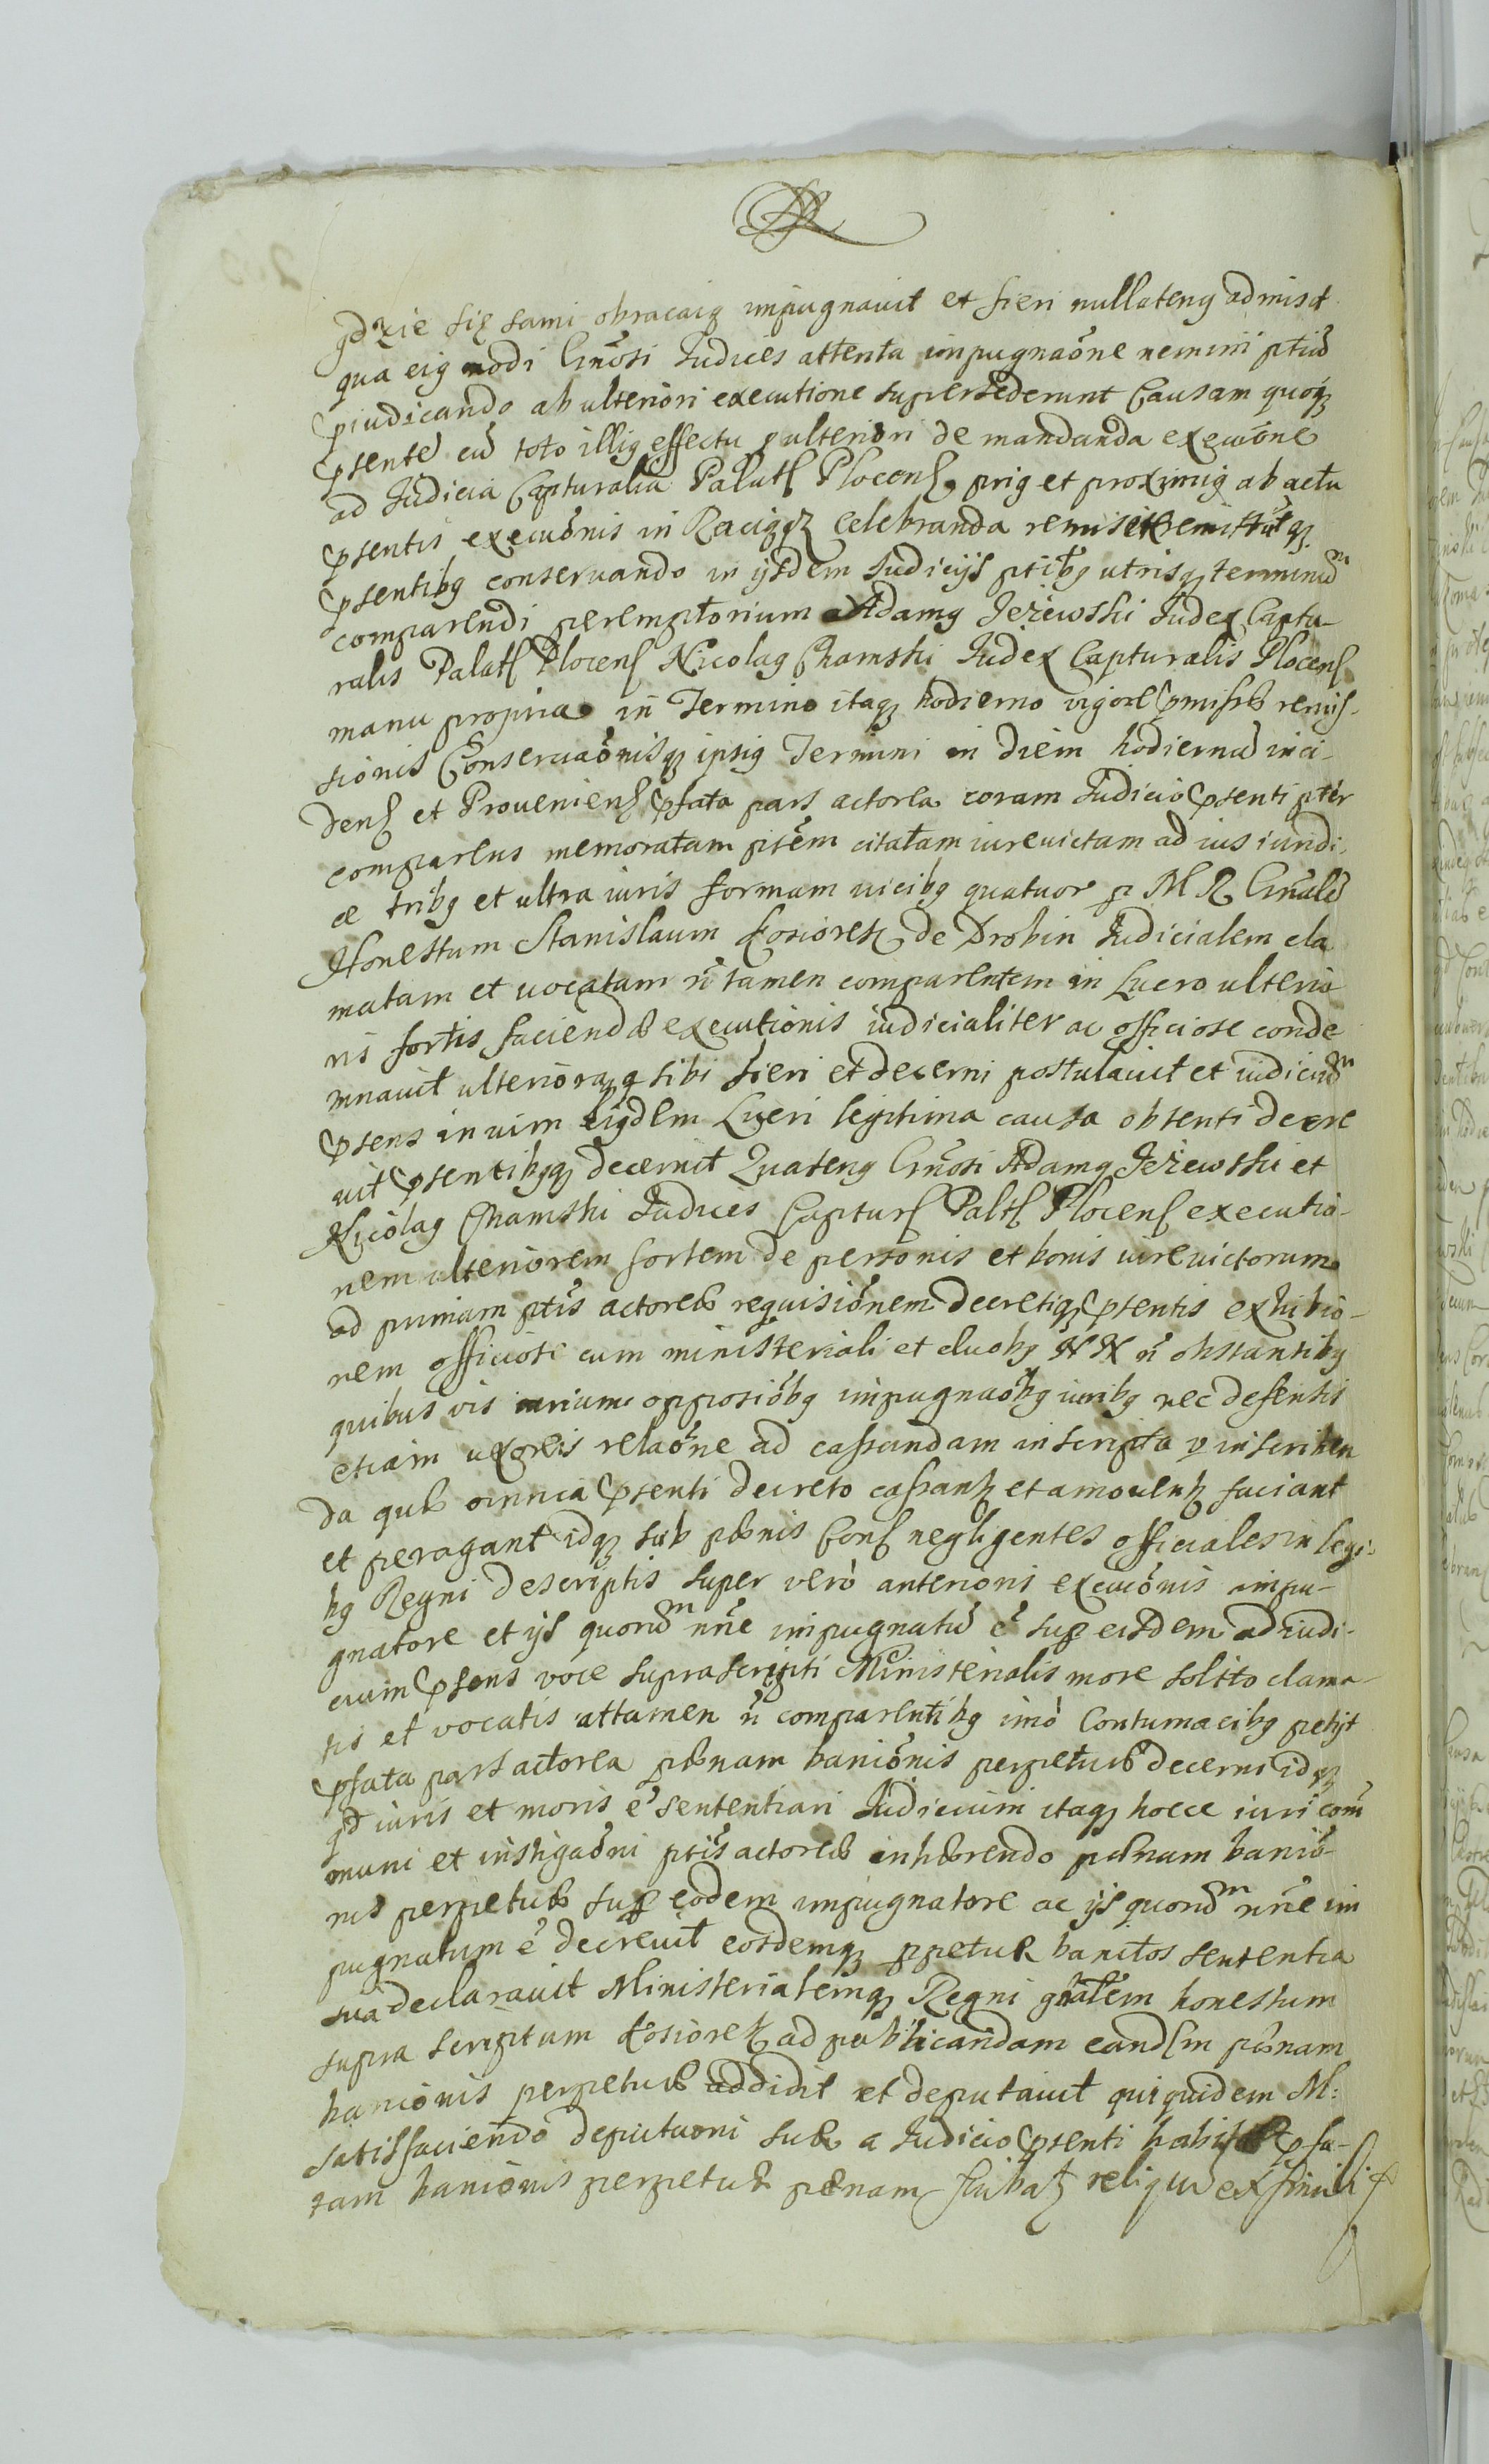 gdzie się sami obracaią impugnauit et fieri nullateng admisit
qua eig modi Gnosi Iudices attenta impugnaōne nemini ptiū
piudicando ab ulteriori executione supersederunt Causam quoq
psentē cū toto illig effectu p ulteriori de mandanda execuōne
ad Iudicia Capturalia Palat Plocen prig et proximig ab actu
psentis execuōnis in Raciąz celebranda remisit remittitq
psentibg conseruando in ijsdem Iudicijs ptibg utrisq terminum
comparendi peremptorium Adamg Jeżewski Iudex Captu-
ralis Palat Plocen Nicolag Chamski Iudex Capturalis Plocen
manu propria in Termino itaq hodierno vigore pmissæ remis-
sionis Conseruaōnisq ipsig Termini in diem hodiernū inci-
den et Prouenien pfata pars actorea coram Iudicio psenti pter
comparens memoratam ptem citatam iureuictam ad ius iuridi-
ce tribg et ultra iuris formam uicibg quatuor p M R Gnalē
Honestum Stanislaum Kosiorek de Drobin Iudicialem cla
matam et uocatam ñ tamen comparentem in Lucro ulterio
ris fortis faciendæ executionis iudicialiter ac officiose conde
mnauit ulterioraq sibi fieri et decerni postulauit et iudicium
psens in uim eigdem Lucri legitima causa obtenti decre
uit psentibgq decernit Quateng Gnosi Adamg Jeżewski et
Nicolag Chamski Iudices Captur Palt Plocen executio-
nem ulteriorem fortem de personis et bonis iureuictorum
ad primam ptis actoreæ requisiōnem decretiq psentis exhibio-
nem officiose cum ministeriali et duobg N N ñ obstantibg
quibus vis iurium opposiōbg impugnaōbg iuribg nec defensis
etiam uxoreis relaōne ad cassandam inscripta v inscriben
da quæ omnia psenti decreto cassant et amouent faciant
et peragant idq sub pœnis Con negligentes officiales in legi-
bg Regni descriptis super verò anterioris execuōnis impu-
gnatore et ijs quorum nñe impugnatū ē sup eisdem ad iudi-
cium psens voce suprascripti Ministerialis more solito clama-
tis et vocatis attamen ñ comparentibg imò Contumacibg petijt
pfata pars actorea pœnam baniōnis perpetuæ decerni idq
qd iuris et moris ē sententiari Iudicium itaq hocce iuri com
muni et instigaōni ptis actoreæ inhærendo pœnam baniō-
nis perpetuæ sup eodem impugnatore ac ijs quorum nñe im
pugnatum ē decreuit eosdemq ppetuæ banitos sententia
sua declarauit Ministerialemq Regni gnalem honestum
supra scriptum Kosiorek ad publicandam eandem pœnam
baniōnis perpetuæ addidit et deputauit qui quidem M:
satisfaciendo deputaoni suæ a Iudicio psenti habitæ pfa-
tam baniōnis perpetuæ pœnam reliquū ex simili